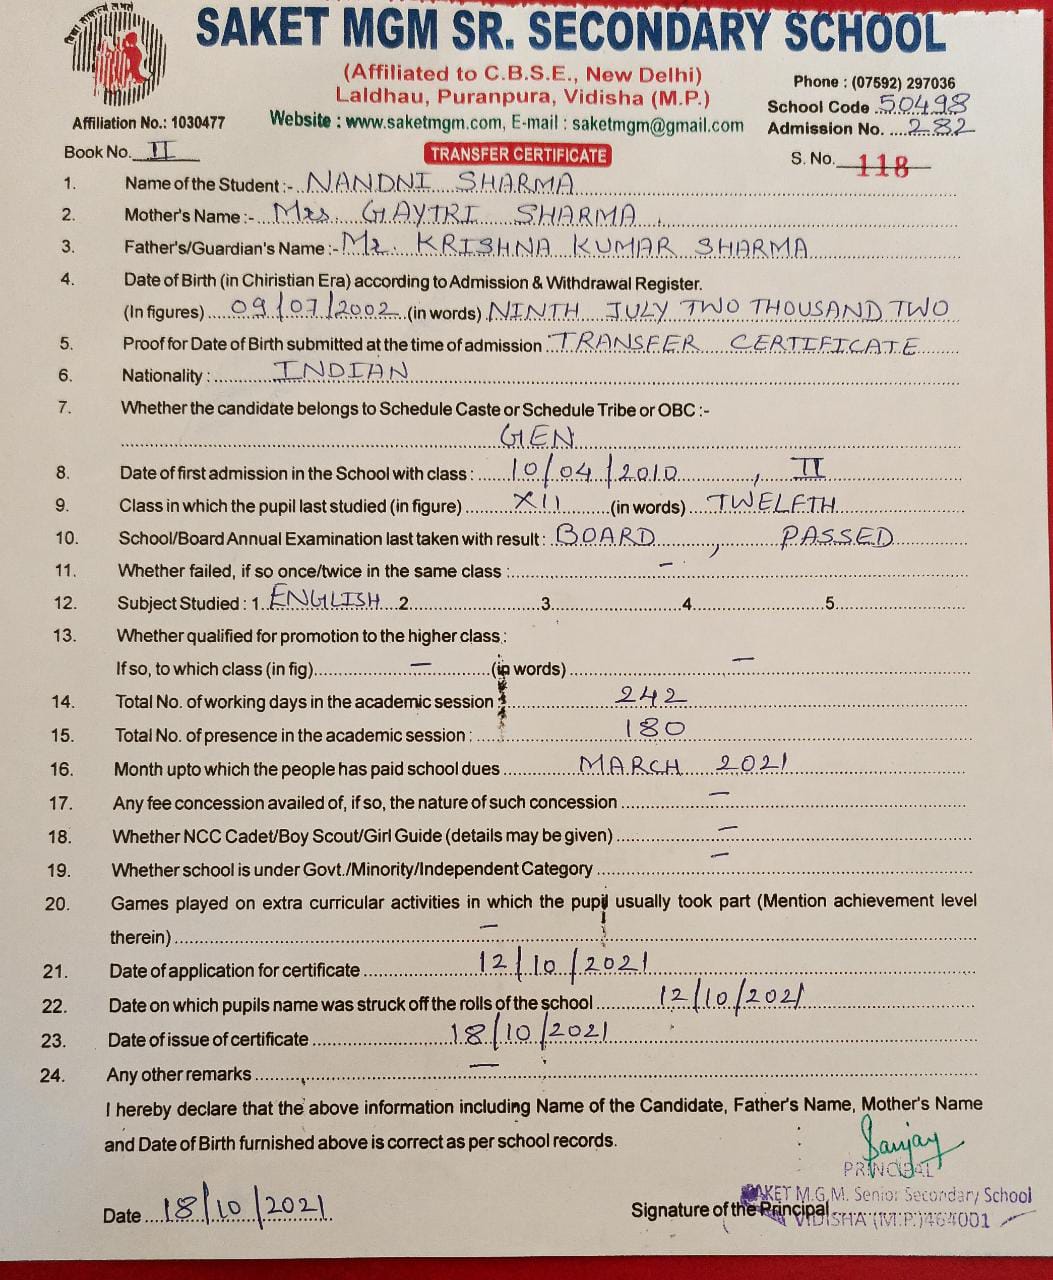 SAKET MGM SR. SECONDARY SCHOOL
(Affiliated to C.B.S.E., New Delhi)
Laldhau, Puranpura, Vidisha (M.P.)
Phone : (07592) 297036
School Code 50498
Affiliation No.: 1030477
Website : www.saketmgm.com, E-mail : saketmgm@gmail.com
Admission No. 282
Book No. II
TRANSFER CERTIFICATE
S. No. 118
1. Name of the Student :- NANDNI SHARMA
2. Mother's Name :- Mrs. GAYTRI SHARMA
3. Father's/Guardian's Name :- Mr. KRISHNA KUMAR SHARMA
4. Date of Birth (in Chiristian Era) according to Admission & Withdrawal Register.
(In figures) 09/07/2002 (in words) NINTH JULY TWO THOUSAND TWO
5. Proof for Date of Birth submitted at the time of admission TRANSFER CERTIFICATE
6. Nationality : INDIAN
7. Whether the candidate belongs to Schedule Caste or Schedule Tribe or OBC :-
GEN
8. Date of first admission in the School with class : 10/04/2010, II
9. Class in which the pupil last studied (in figure) XII (in words) TWELFTH
10. School/Board Annual Examination last taken with result : BOARD, PASSED
11. Whether failed, if so once/twice in the same class : -
12. Subject Studied : 1. ENGLISH 2. 3. 4. 5.
13. Whether qualified for promotion to the higher class :
If so, to which class (in fig) - (in words) -
14. Total No. of working days in the academic session : 242
15. Total No. of presence in the academic session : 180
16. Month upto which the people has paid school dues MARCH 2021
17. Any fee concession availed of, if so, the nature of such concession -
18. Whether NCC Cadet/Boy Scout/Girl Guide (details may be given) -
19. Whether school is under Govt./Minority/Independent Category -
20. Games played on extra curricular activities in which the pupil usually took part (Mention achievement level
therein) -
21. Date of application for certificate 12/10/2021
22. Date on which pupils name was struck off the rolls of the school 12/10/2021
23. Date of issue of certificate 18/10/2021
24. Any other remarks -
I hereby declare that the above information including Name of the Candidate, Father's Name, Mother's Name
and Date of Birth furnished above is correct as per school records.
Sanjay
PRINCIPAL
SAKET M.G.M. Senior Secondary School
Date 18/10/2021 Signature of the Principal
VIDISHA (M.P.) 464001